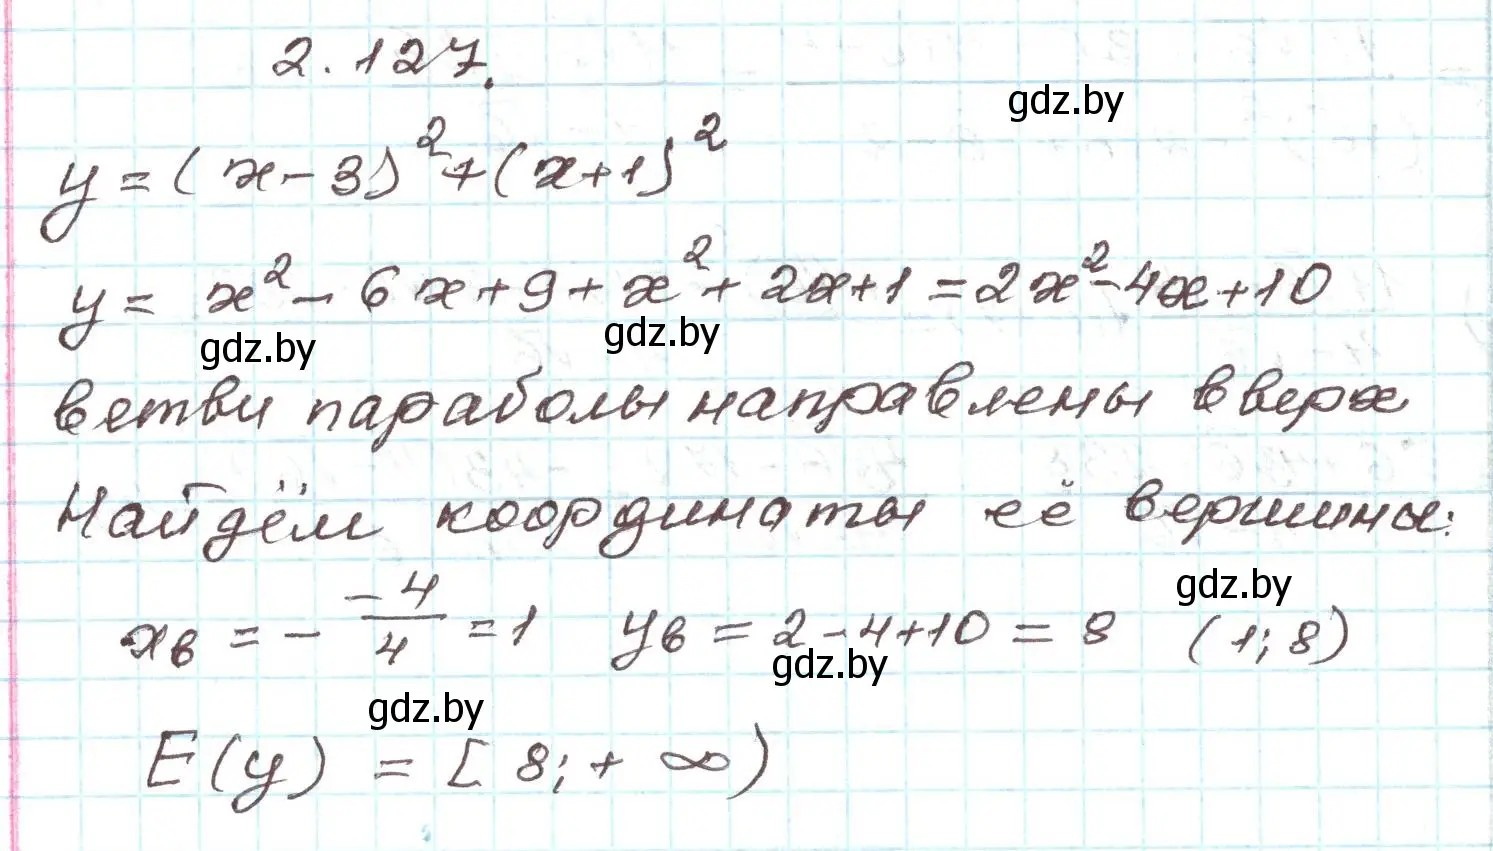 2.127.
gdz.by
y=(x-3)²+(x+1)²
y= x²-6x+9+x²+2x+1=2x²-4x+10
gdz.by gdz.by
ветви параболы направлены вверх
Найдём координаты её вершины:
gdz.by
xв = - -4/4 = 1 yв = 2-4+10 = 8 (1; 8)
gdz.by
gdz.by
E(y) = [8; + ∞)